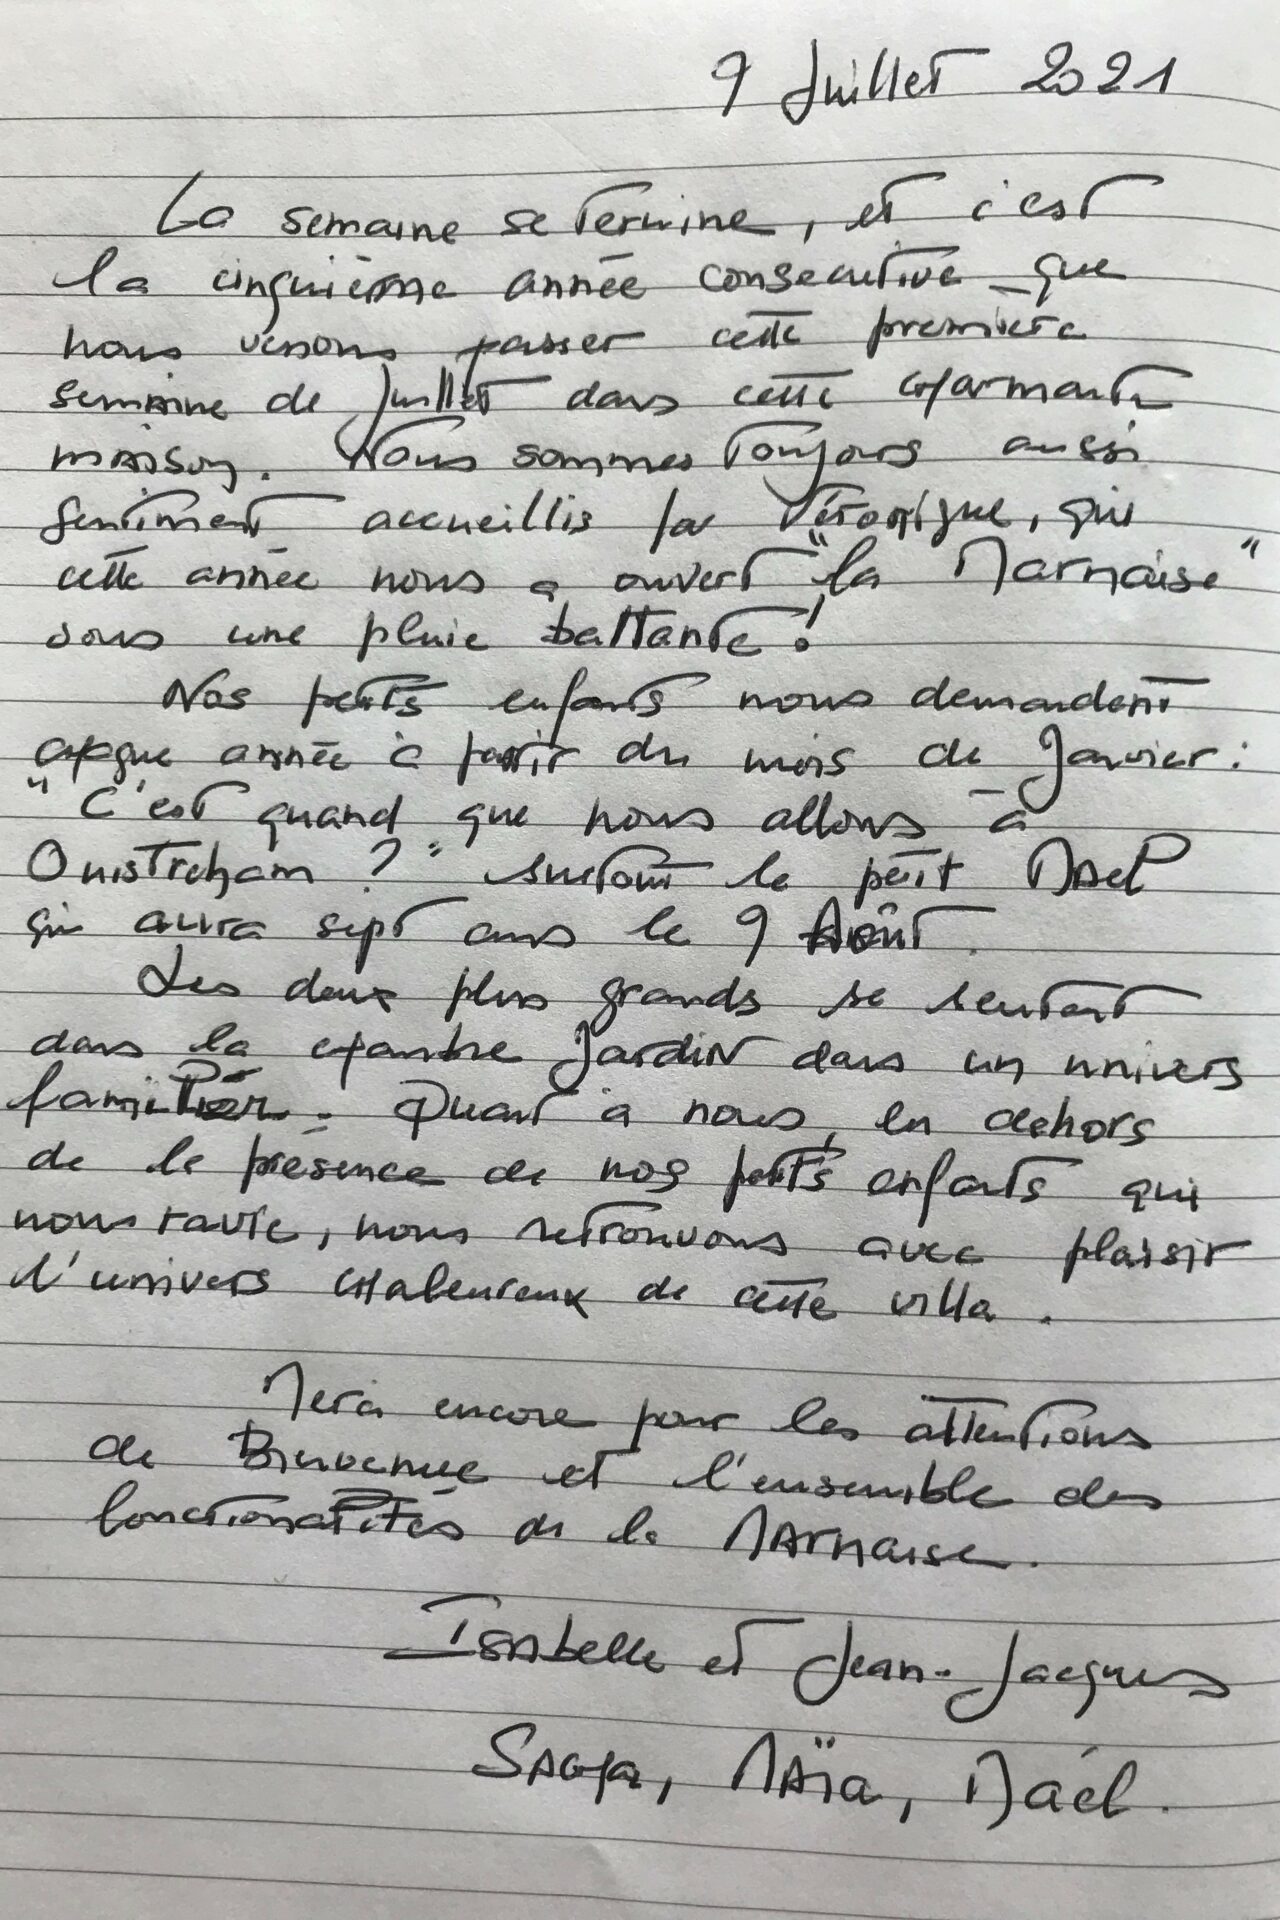 9 Juillet 2021
La semaine se termine, et c'est
la cinquième année consecutive que
nous venons passer cette première
semaine de Juillet dans cette charmante
maison. Nous sommes toujours aussi
gentiment accueillis par Véronique, qui
cette année nous a ouvert "la Marnaise"
sous une pluie battante !
Nos petits enfants nous demandent
chaque année à partir du mois de Janvier :
"C'est quand que nous allons à
Ouistreham ?" surtout le petit Maël
qui aura sept ans le 9 Août.
Les deux plus grands se sentent
dans la chambre Jardin dans un univers
familier. Quant à nous, en dehors
de la présence de nos petits enfants qui
nous ravie, nous retrouvons avec plaisir
l'univers chaleureux de cette villa.
Merci encore pour les attentions
de Bienvenue et l'ensemble des
fonctionalités de la Marnaise.
Isabelle et Jean-Jacques
Sacha, Maïa, Maël.